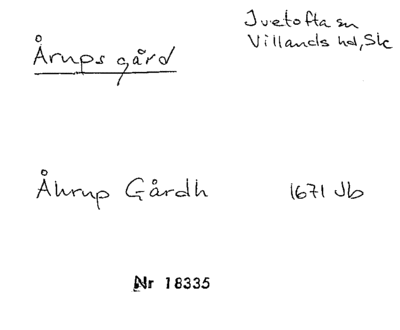 Årups gård
Ivetofta sn
Villands hd, Sk
Åhrup Gårdh
1671 Jb
Nr 18335